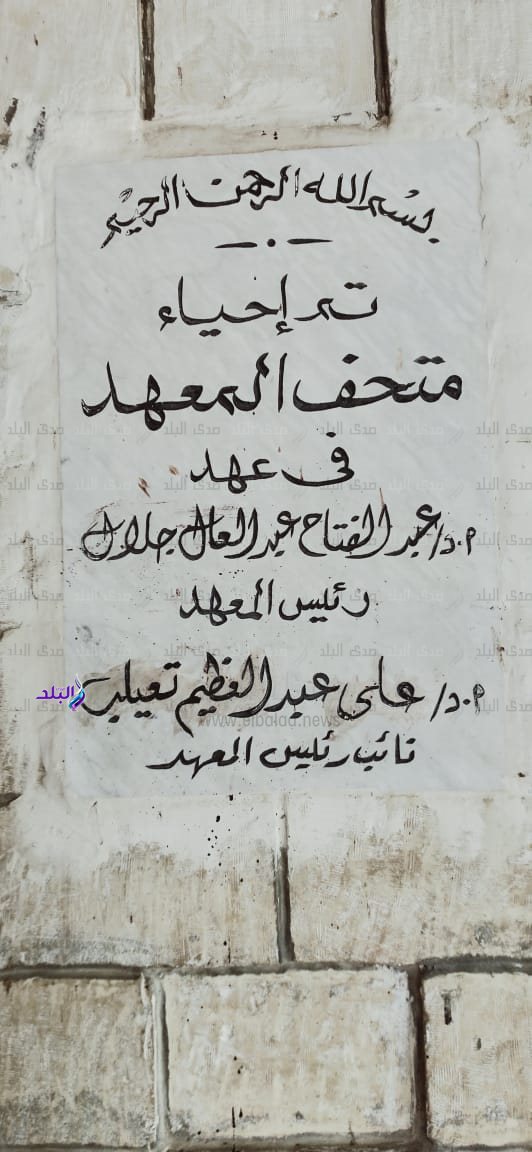 بسم الله الرحمن الرحيم
تم إحياء
متحف المعهد
فى عهد
م.د/ عبد الفتاح عبد العال جلال
رئيس المعهد
م.د/ على عبد العظيم تعيلب
نائب رئيس المعهد
صدى البلد
www.elbalad.news